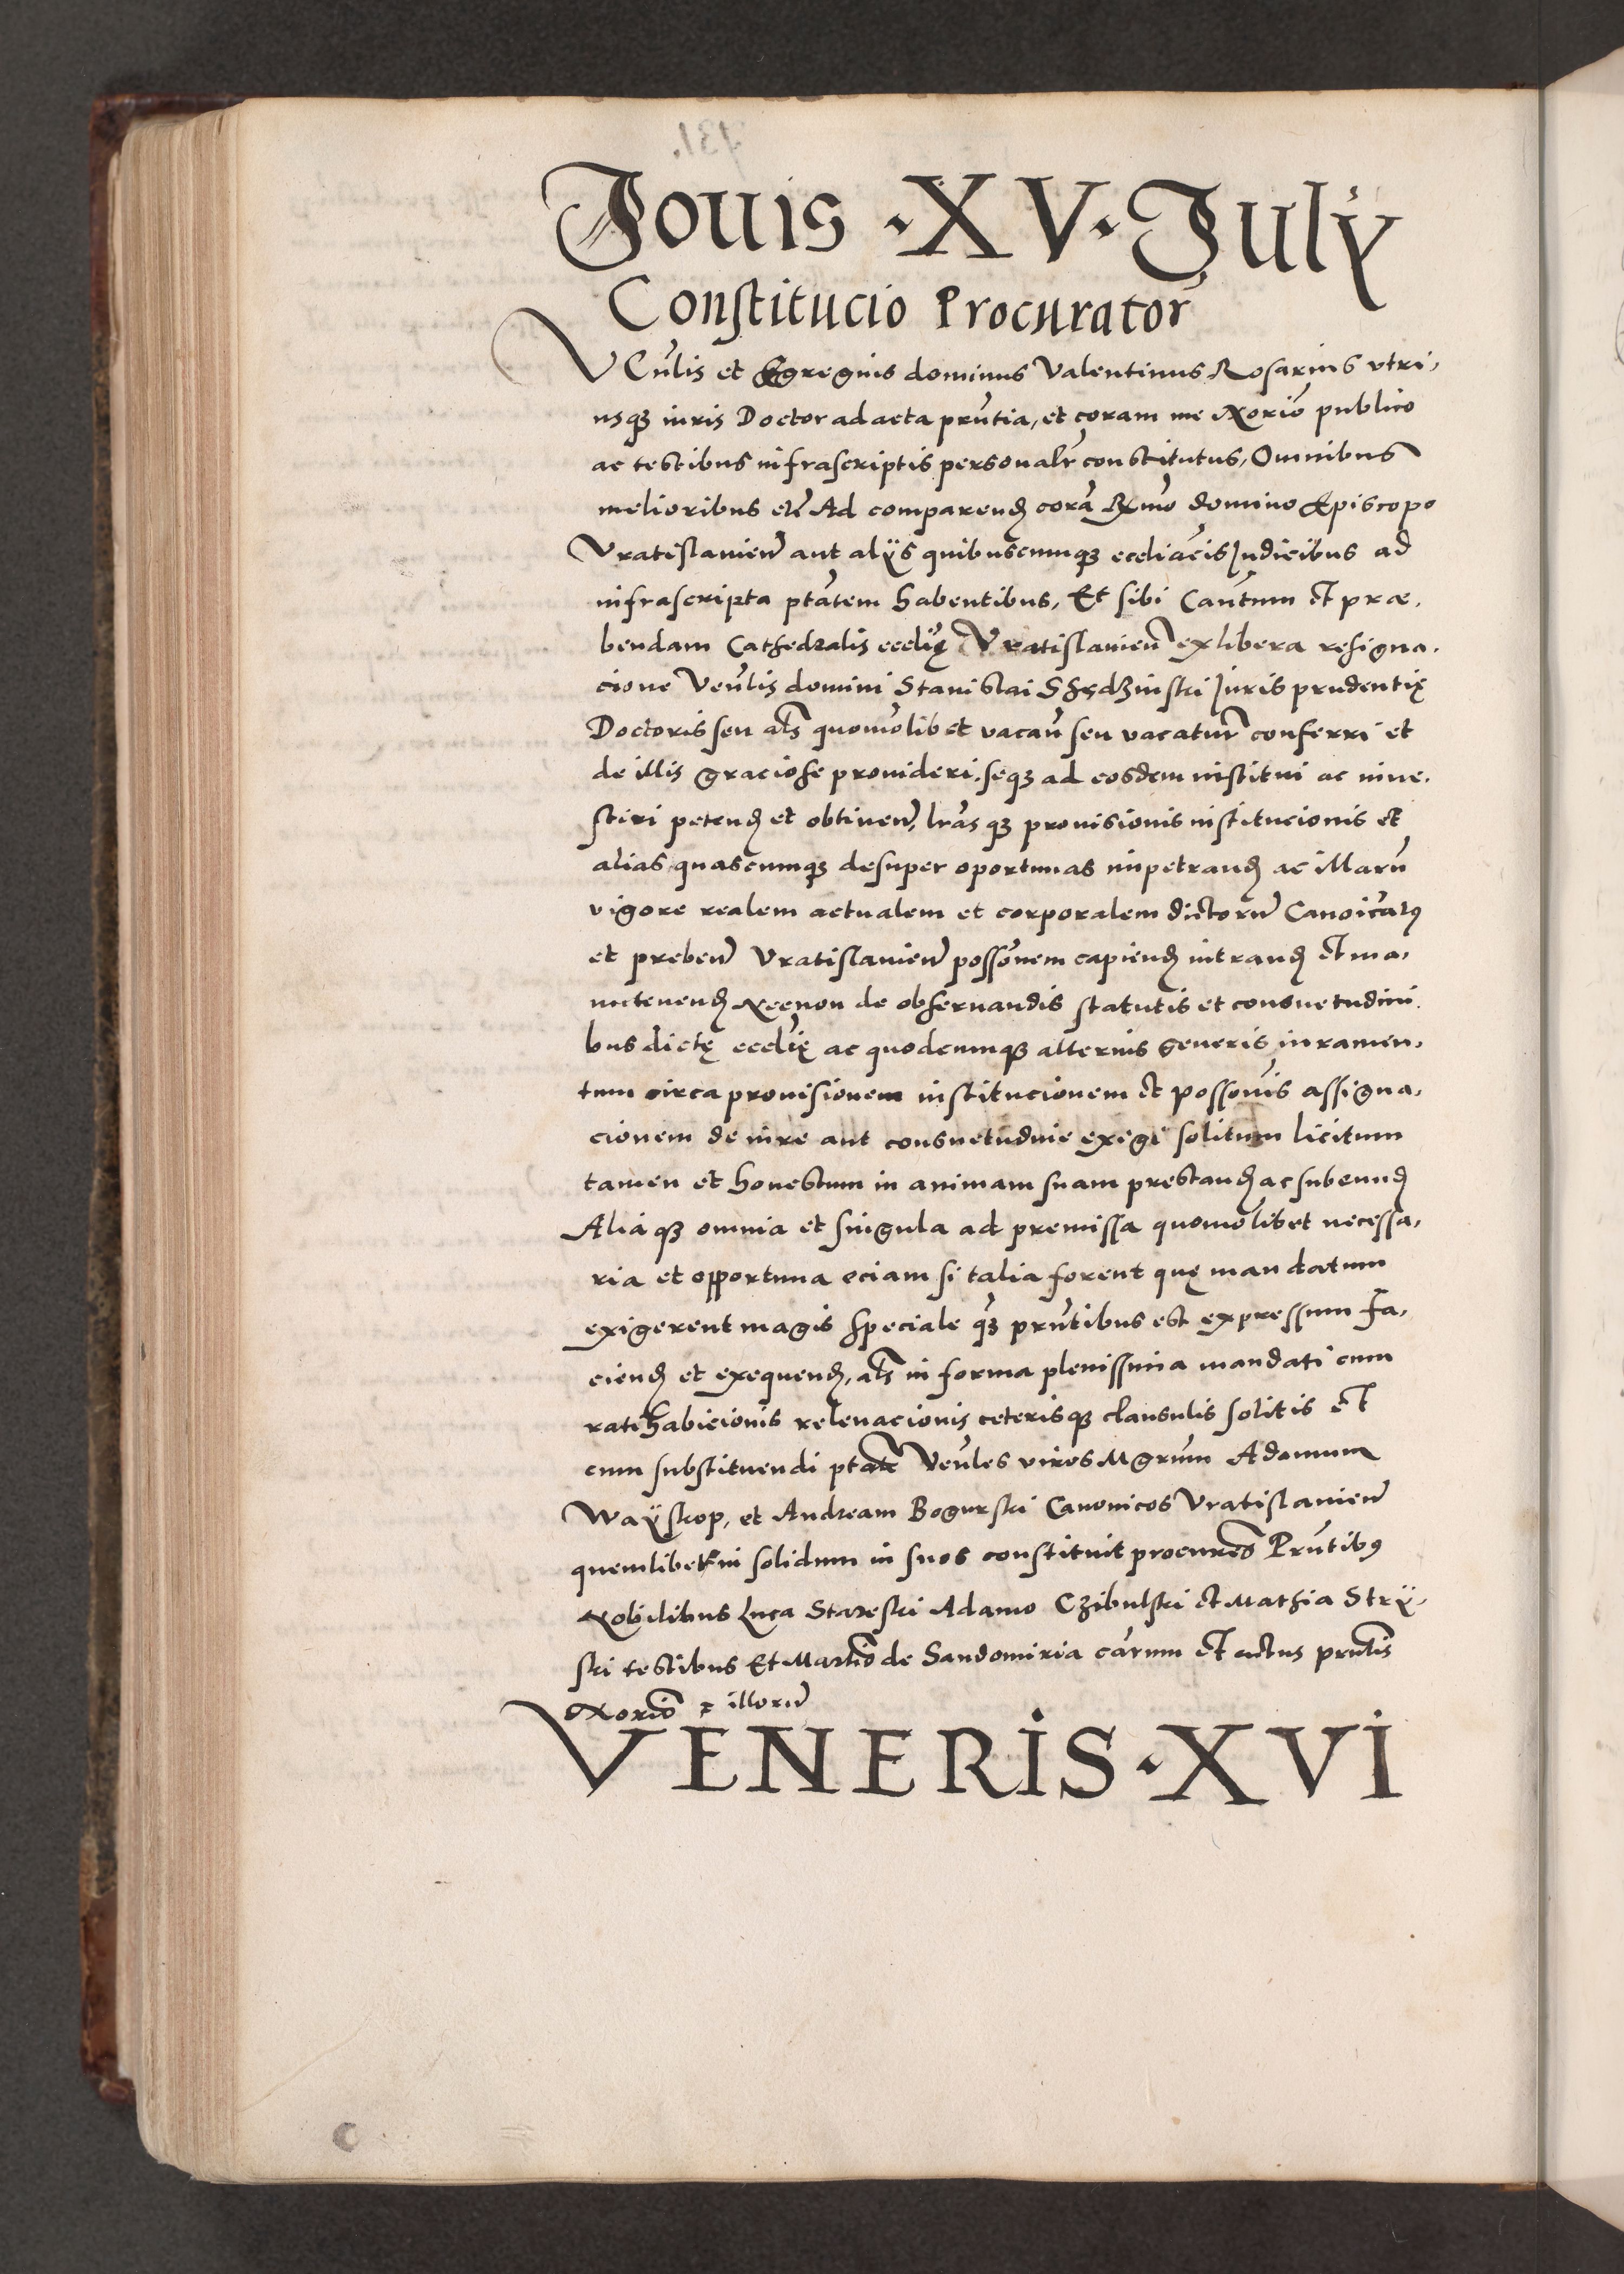 Jouis · X V · July
Constitucio Procurator̃
VEn̄lis et Egregius dominus Valentinus Rosarius vtri,
usqꝫ iuris Doctor ad acta pn̄tia, et coram me Norīo publico
ac testibus infrascriptis personalr̄ constitutus, Omnibus
melioribus etc̄ Ad comparenđ corā Rxmo domino Episcopo
Vratislauien̄ aut alÿs quibuscumqꝫ eccliācis Judicibus ad
infrascripta ptātem habentibus, Et sibi Cañtum et præ,
bendam Cathedralis ecclīę Vratislauien̄ ex libera resigna,
cione Ven̄lis domini Stanislai Sſędzinski Jurisprudentię
Doctoris seu al̄s quomōlibet vacan̄ seu vacatur̄ conferri et
de illis graciose prouideri, seqꝫ ad eosdem institui ac inue,
stiri petenđ et obtinen̄, lrās qꝫ prouisionis institucionis et
alias quascumqꝫ desuper oportunas impetranđ ac illarū
vigore realem actualem et corporalem dictorū Canoicatꝰ
et preben̄ Vratislauien̄ possōnem capienđ intranđ et ma,
nutenenđ Necnon de obseruandis statutis et consuetudini
bus dictę ecclīę ac quodcumqꝫ alterius generis iuramen,
tum circa prouisionem institucionem et possōnis assigna,
cionem de iure aut consuetudine exigi solitum licitum
tamen et honestum in animam suam prestanđ ac subeunđ
Alia qꝫ omnia et singula ad premissa quomōlibet necessa,
ria et opportuna eciam si talia forent quę mandatum
exigerent magis speciale qꝫ̄ pn̄tibus est expressum fa,
cienđ et exequenđ, al̄s in forma plenissima mandati cum
ratihabicionis releuacionis ceterisqꝫ clausulis solitis et
cum substituendi ptāte Ven̄les viros Mgrūm Adamum
WaÿSkop, et Andream Bogurski Canonicos Vratislauien̄
quemlibet in solidum in suos constituit procur̄es Pn̄tibꝰ
Nobilibus Luca Stareski Adamo Czibulski et Mathia Strÿ,
ski testibus Et Martīo de Sandomiria cārum et actus pn̄tis
Norīo ꝛ illorū
VENERIS · XVI